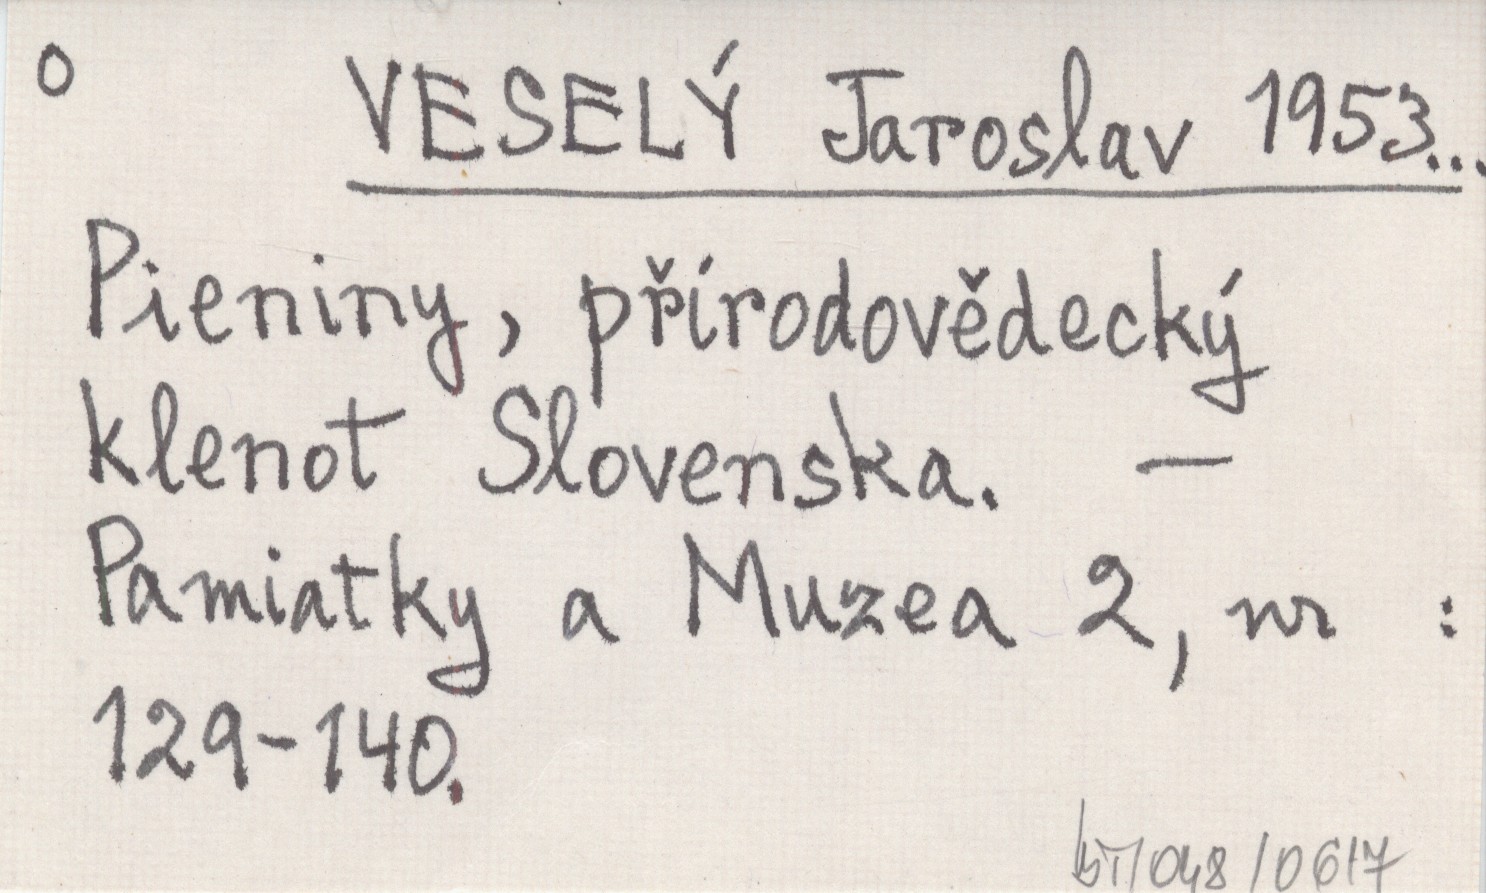 o VESELÝ Jaroslav 1953...
Pieniny, přírodovědecký
klenot Slovenska. —
Pamiatky a Muzea 2, nr :
129-140.
/048/0617